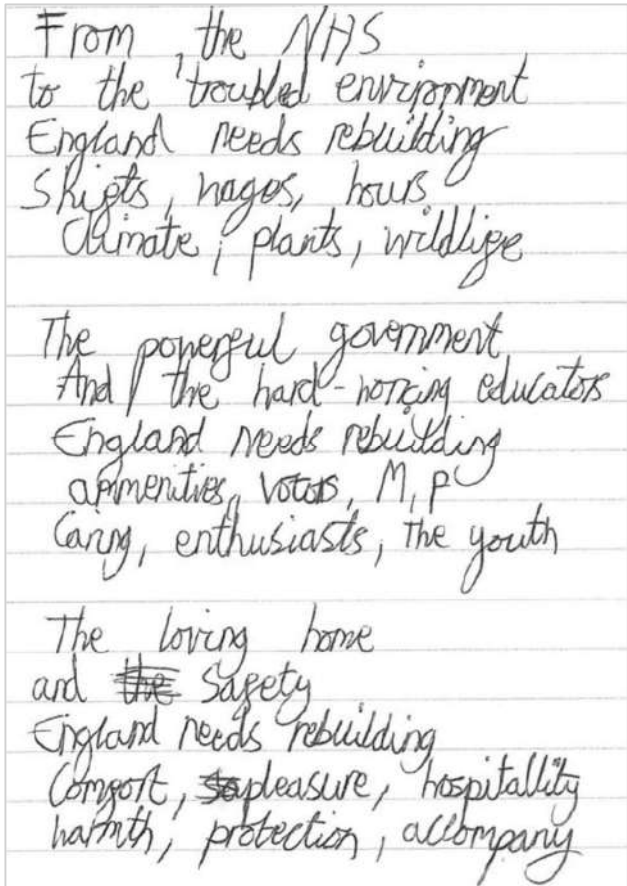 From, the NHS
to the troubled environment
England needs rebuilding
Shifts, wages, hours
Climate, plants, wildlife
The powerful government
And the hard-working educators
England needs rebuilding
ammenities, votors, M,P
Caring, enthusiasts, The youth
The loving home
and the Safety
England needs rebuilding
Comfort, pleasure, hospitallity
warmth, protection, accompany